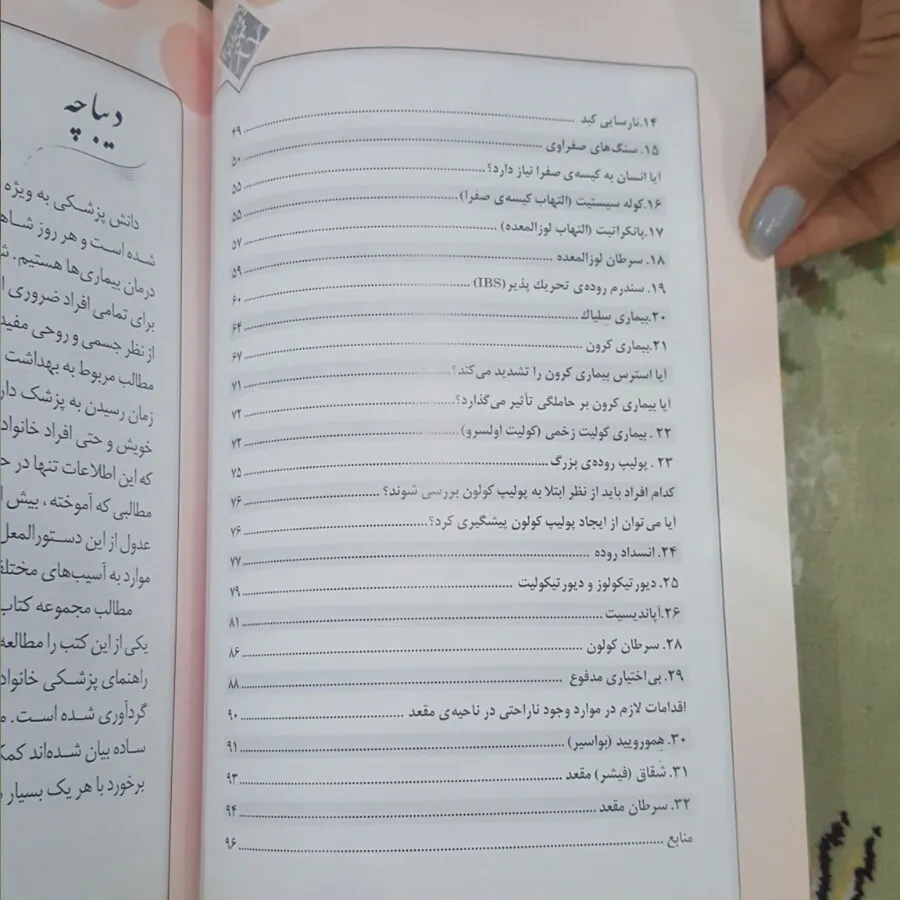 ۱۴.نارسایی کبد ۴۹
۱۵. سنگ‌های صفراوی ۵۰
آیا انسان به کیسه‌ی صفرا نیاز دارد؟ ۵۵
۱۶.کوله سیستیت (التهاب کیسه‌ی صفرا) ۵۵
۱۷.پانکراتیت (التهاب لوزالمعده) ۵۷
۱۸. سرطان لوزالمعده ۵۹
۱۹. سندرم روده‌ی تحریک پذیر(IBS) ۶۰
۲۰.بیماری سِلیاک ۶۴
۲۱.بیماری کرون ۶۷
آیا استرس بیماری کرون را تشدید می‌کند؟ ۷۱
آیا بیماری کرون بر حاملگی تأثیر می‌گذارد؟ ۷۲
۲۲. بیماری کولیت زخمی (کولیت اولسرو) ۷۲
۲۳. پولیپ روده‌ی بزرگ ۷۵
کدام افراد باید از نظر ابتلا به پولیپ کولون بررسی شوند؟ ۷۶
آیا می‌توان از ایجاد پولیپ کولون پیشگیری کرد؟ ۷۶
۲۴. انسداد روده ۷۷
۲۵. دیورتیکولوز و دیورتیکولیت ۷۹
۲۶.آپاندیسیت ۸۱
۲۸. سرطان کولون ۸۶
۲۹. بی‌اختیاری مدفوع ۸۸
اقدامات لازم در موارد وجود ناراحتی در ناحیه‌ی مقعد ۹۰
۳۰. هِموروییید (بواسیر) ۹۱
۳۱. شَقاق (فیشر) مقعد ۹۳
۳۲. سرطان مقعد ۹۴
منابع ۹۶
دیباچه
دانش پزشکی به ویژه
شده است و هر روز شاه
درمان بیماری‌ها هستیم. ش
برای تمامی افراد ضروری ا
از نظر جسمی و روحی مفید
مطالب مربوط به بهداشت
زمان رسیدن به پزشک دار
خویش و حتی افراد خانواد
که این اطلاعات تنها در ح
مطالبی که آموخته ، بیش ا
عدول از این دستورالمعل
موارد به آسیب‌های مختلف
مطالب مجموعه کتاب
یکی از این کتب را مطالعه
راهنمای پزشکی خانواد
گردآوری شده است. م
ساده بیان شده‌اند کمک
برخورد با هر یک بسیار م